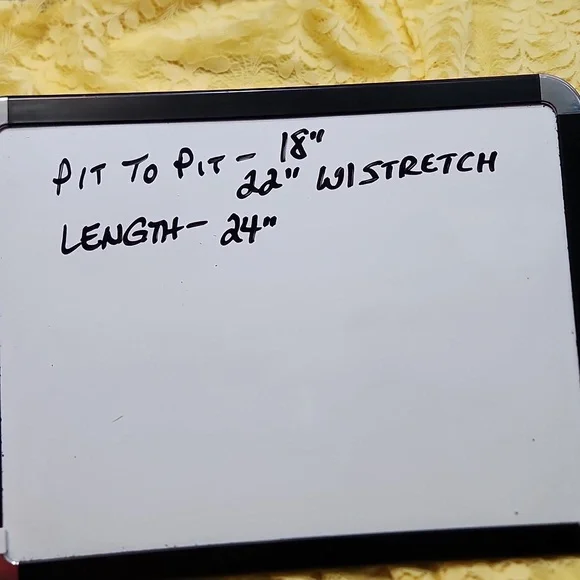 PIT TO PIT - 18"
22" W/STRETCH
LENGTH- 24"